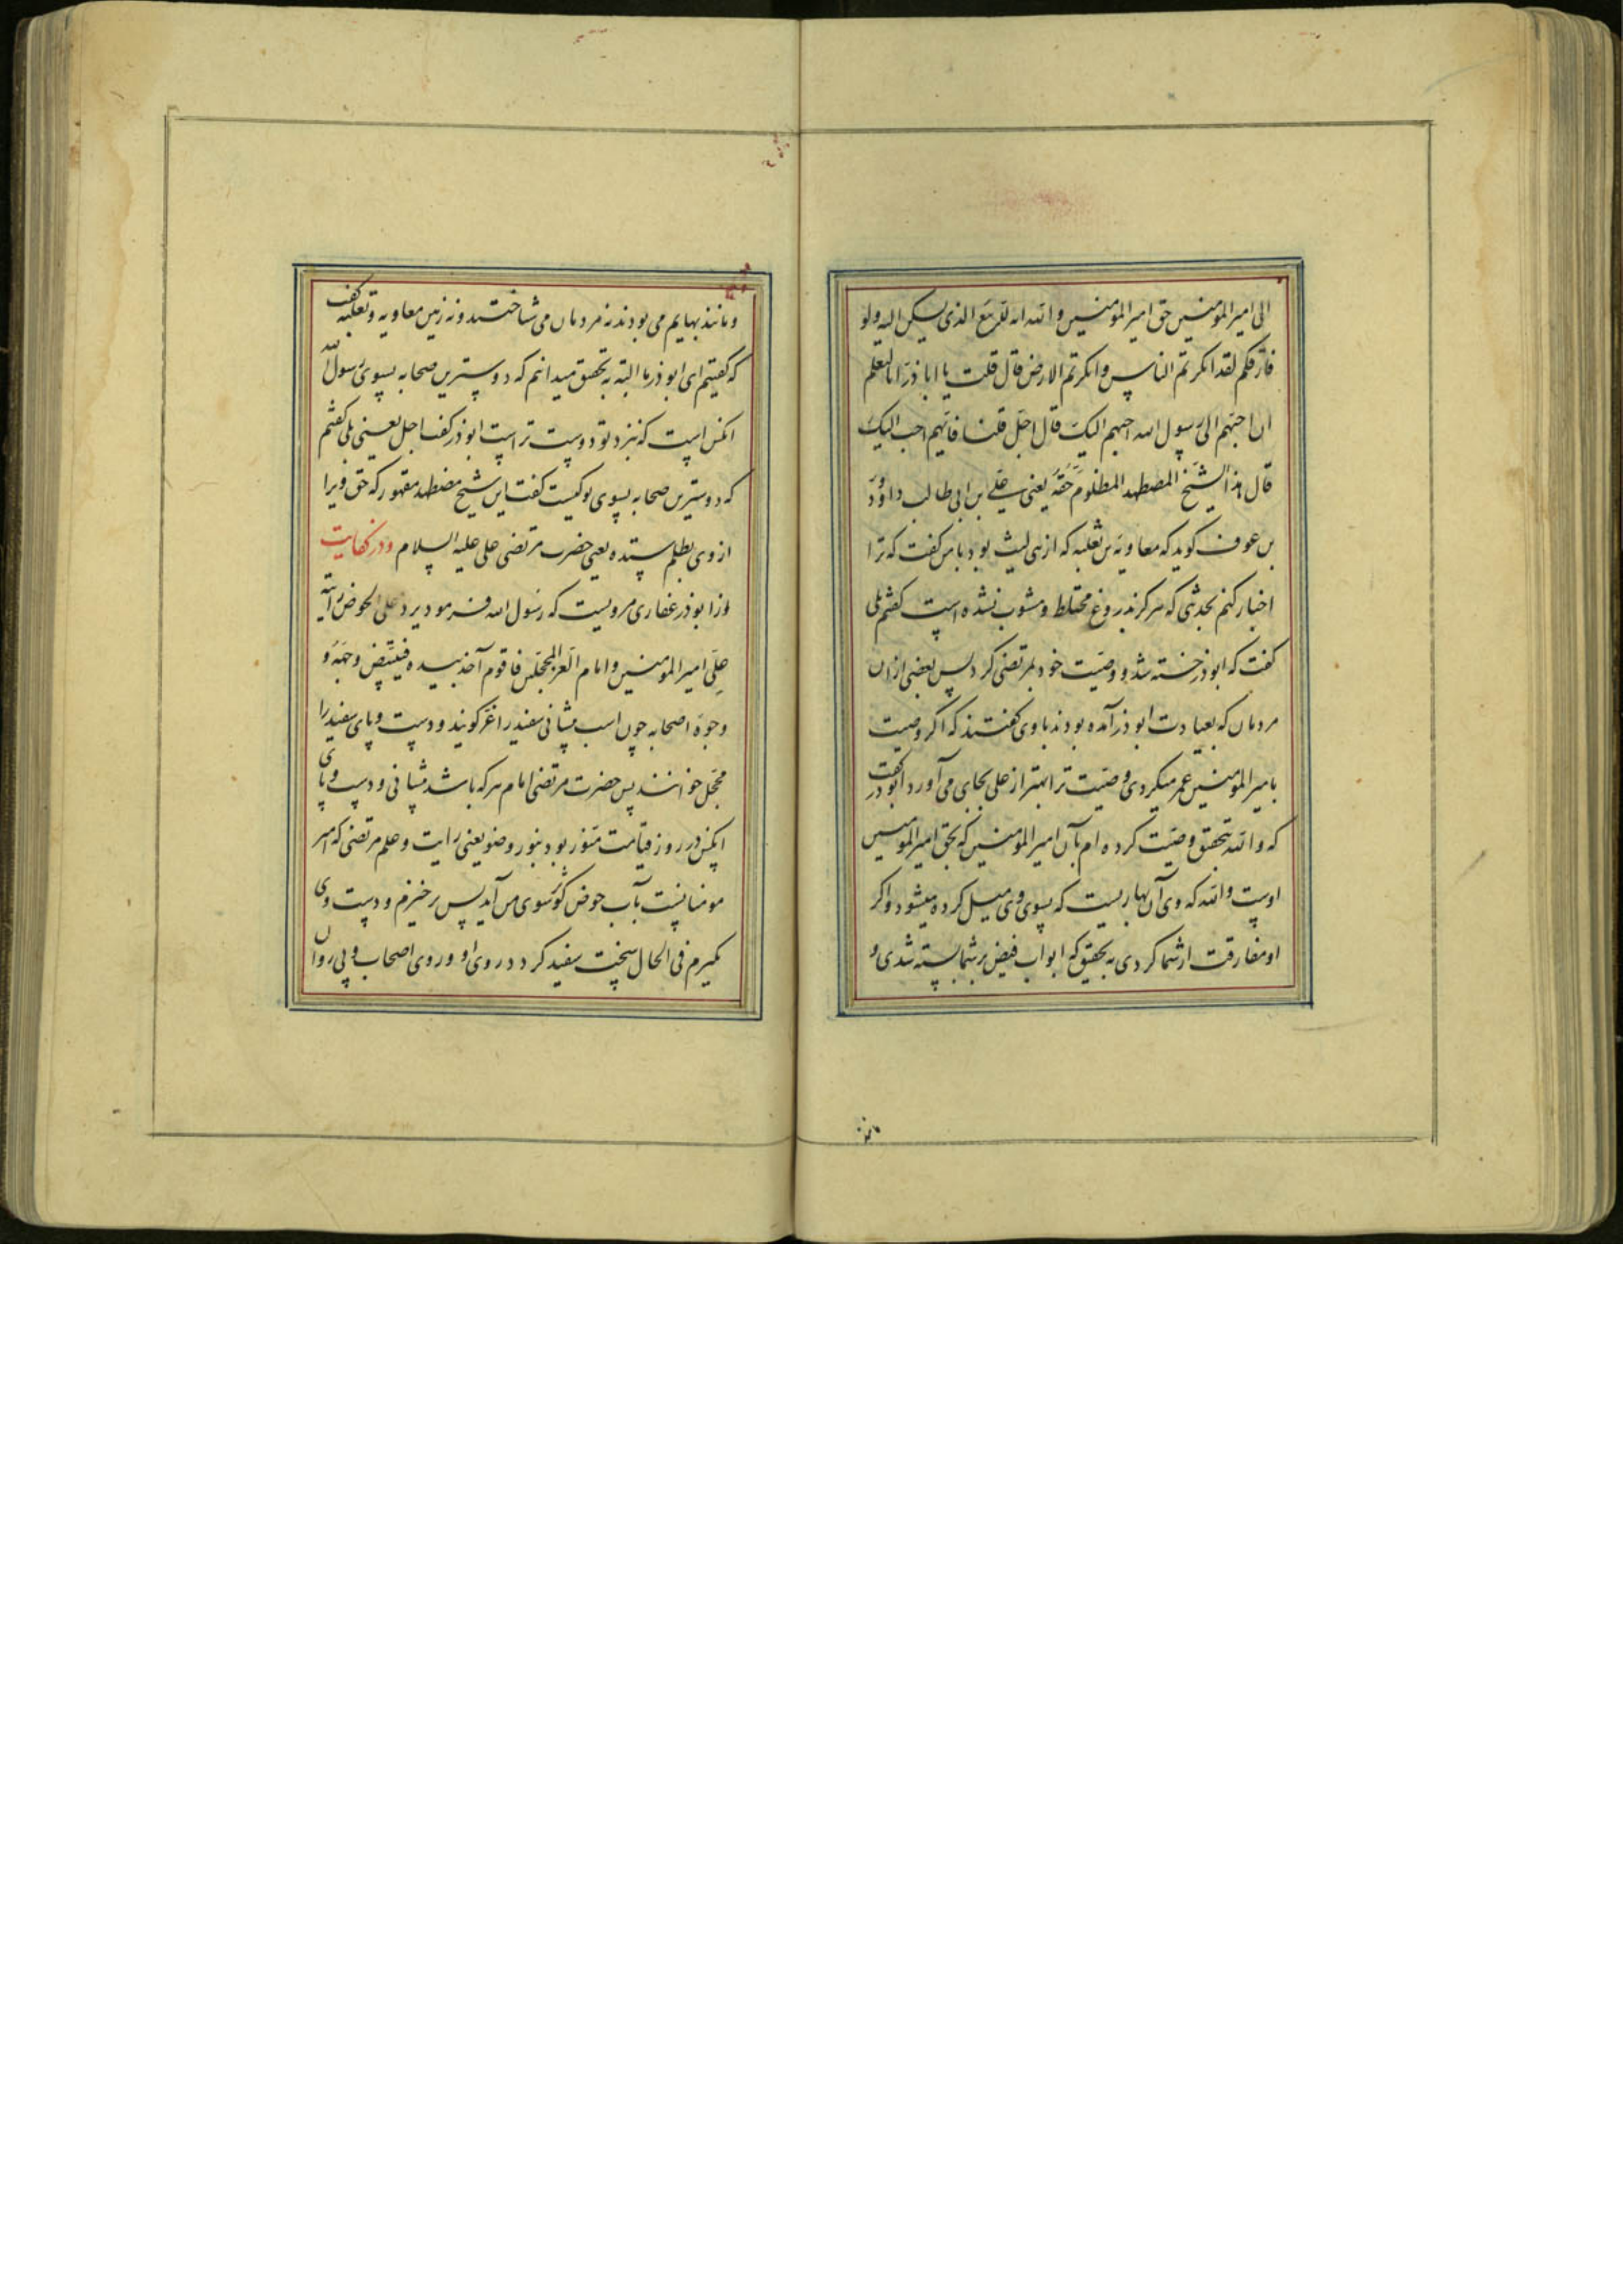 الی امیر المومنین حق امیر المومنین والله انه للربیع الذی یسکن الیه ولو
فارقکم لقد انکرتم الناس وانکرتم الارض قال قلت یا اباذر انا لنعلم
ان احبهم الی رسول الله احبهم الیک قال اجل قلنا فایهم احب الیک
قال هذا الشیخ المضطهد المظلوم حقه یعنی علی ابن ابی طالب داود
بن عوف کوید که معاویة بن ثعلبه که از بنی لیث بود با من کفت که ترا
اخبار کنم بحدیثی که هرکز بدروغ مختلط و مشوب نشده است کفتم بلی
کفت که ابوذر خسته شد و وصیت خود بمرتضی کرد پس بعضی از ان
مردمان که بعیادت ابوذر آمده بودند باوی کفتند که اکر وصیت
بامیر المومنین عمر میکردی وصیت ترا بهتر از علی بجای می آورد ابوذر کفت
که والله بتحقیق وصیت کرده ام بآن امیر المومنین که بحق امیر المومنین
اوست والله که وی آن بهاریست که بسوی وی میل کرده میشود و اکر
او مفارقت از شما کردی به تحقیق که ابواب فیض بر شما بسته شدی و
مانند
و مانند بهایم می بودند نه مردمان می شناختند و نه زمین معاویه و ثعلبه کفت
که کفتیم ای ابوذر ما البته به تحقیق میدانم که دوسترین صحابه بسوی رسول الله
انکس است که نزد تو دوست تر است ابوذر کفت اجل یعنی بلی کفتم
که دوسترین صحابه بسوی تو کیست کفت این شیخ مضطهد مقهور که حق ویرا
از وی بظلم ستده یعنی حضرت مرتضی علی علیه السلام و در کفایت
از ابوذر غفاری مرویست که رسول الله فرمود یرد علی الحوض رایة
علی امیر المومنین وامام الغر المحجلین فاقوم آخذ بیده فیبیض وجهه و
وجوه اصحابه چون اسب پیشانی سفید را اغر کویند و دست و پای سفید را
محجل خوانند پس حضرت مرتضی امام هر که باشد پیشانی و دست و پای
انکس در روز قیامت منور بود بنور وضو یعنی رایت و علم مرتضی که امیر
مومنانست بآب حوض کوثر سوی من آید پس برخیزم و دست وی
بکیرم فی الحال سخت سفید کردد روی او و روی اصحاب و پی روان